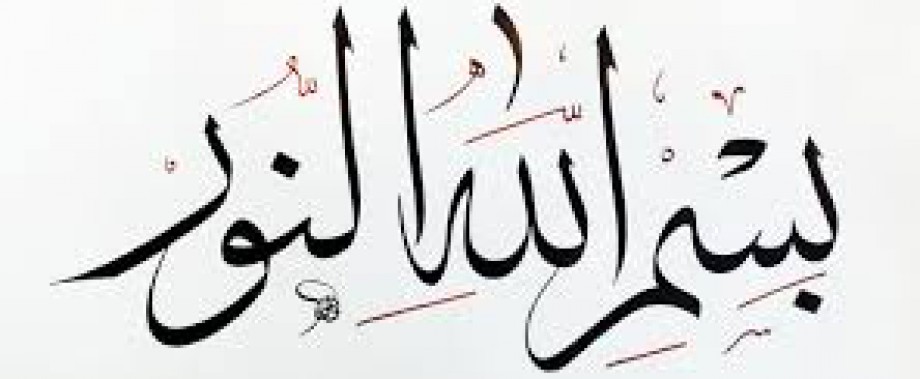 بِسْمِ اللَّهِ النُّور